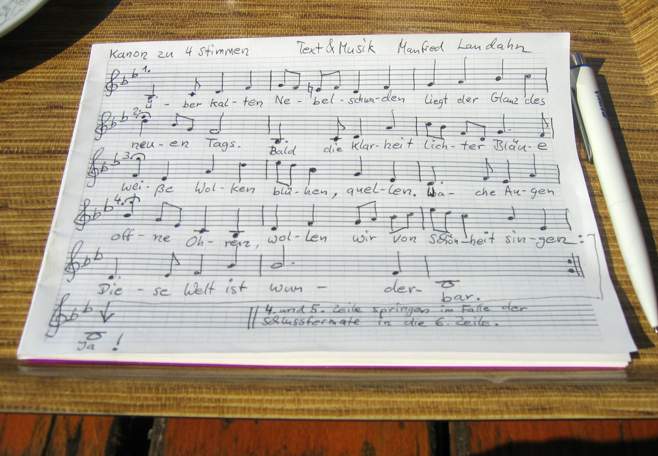 Kanon zu 4 Stimmen Text & Musik Manfred Landahn
1.
Ü - ber kal - ten Ne - bel - schwa - den liegt der Glanz des
2.
neu - en Tags. Bald die Klar - heit lich - ter Bläu - e
3.
Wei - ße Wol - ken blü - hen, quel - len. Wa - che Au - gen
4.
off - ne Oh - ren, wol - len wir von Schön - heit sin - gen:
Die - se Welt ist wun - der - bar.
4. und 5. Zeile springen im Falle der
Schlussfermate in die 6. Zeile.
Ja !